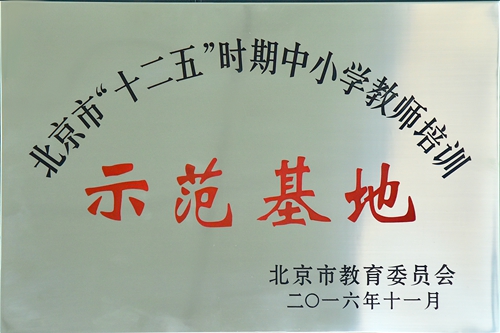 北京市“十二五”时期中小学教师培训
示范基地
北京市教育委员会
二〇一六年十一月